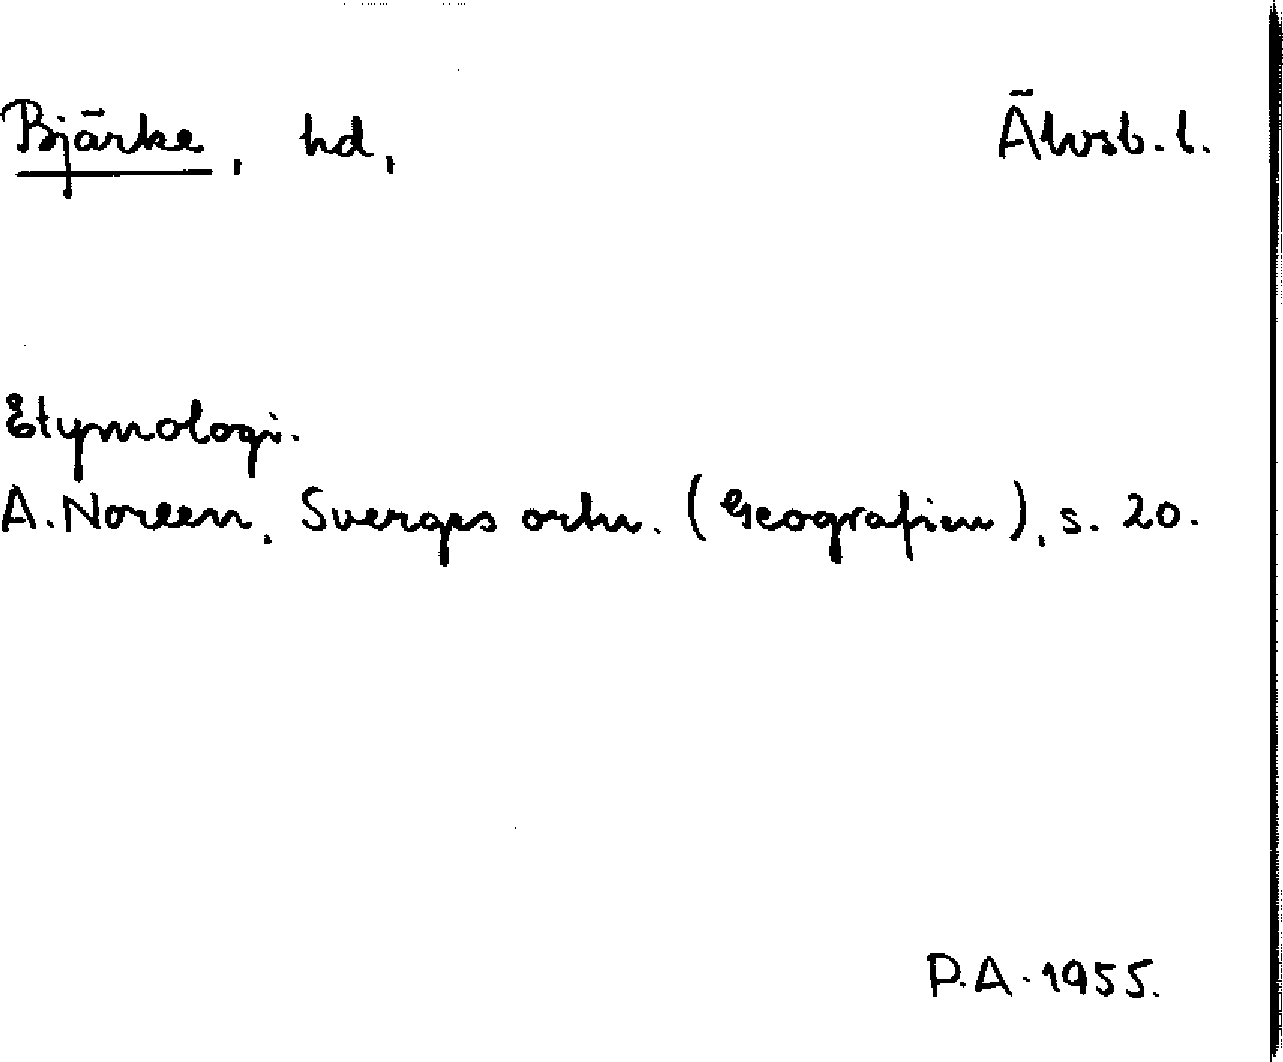 Bjärke, hd, Älvsb. l.
Etymologi.
A. Noreen, Sverges ortn. (Geografien), s. 20.
P.A. 1955.